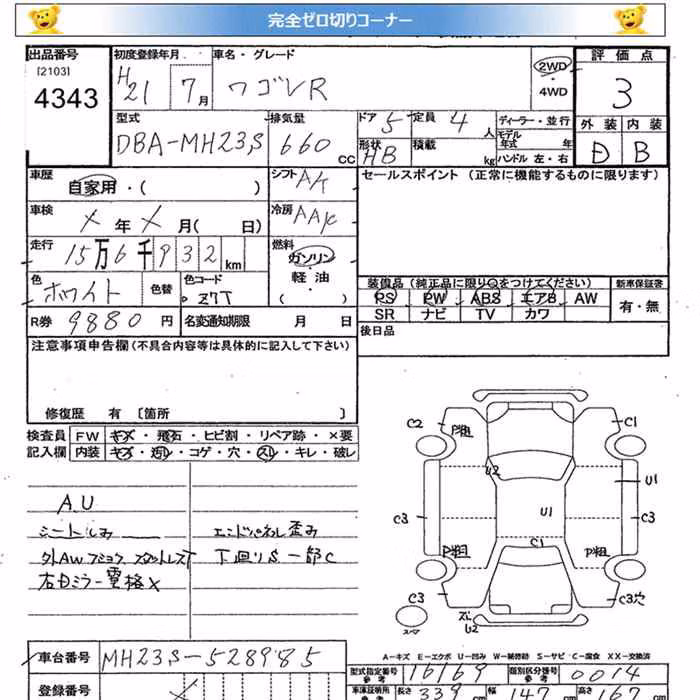 完全ゼロ切りコーナー
出品番号 初度登録年月 車名・グレード 評価点
[2103]
4343 H21 7月 ワゴンR 2WD・4WD 3
型式 排気量 ドア 5 定員 4人 ディーラー・並行 外装 内装
DBA-MH23S 660cc 形状 HB 積載 kg モデル年式 年 D B
ハンドル 左・右
車歴 自家用・( ) シフト AK セールスポイント(正常に機能するものに限ります)
車検 X年X月( 日) 冷房 AAC
走行 15万6千932km 燃料 ガソリン・軽油・( )
色 ホワイト 色替 色コード Z7T 装備品(純正品に限り○をつけてください) 新車保証書
PS PW ABS エアB AW 有・無
SR ナビ TV カワ
R券 9880円 名変通知期限 月 日 後日品
注意事項申告欄(不具合内容等は具体的に記入して下さい)
修復歴 有 〔箇所 〕
検査員 FW キズ・飛石・ヒビ割・リペア跡・×要
記入欄 内装 キズ・汚レ・コゲ・穴・スレ・キレ・破レ
AU
シートしみ エンドパネル歪み
外AW スタットレスT 下廻りS一部C
右Dミラー電格X
C2 P粗 C1
U2 U1 U1
C3 C3
P粗 C1 P粗
C3 C3穴
スペア U2
A-キズ E-エクボ U-凹み W-補修跡 S-サビ C-腐食 XX-交換済
車台番号 MH23S-528985 型式指定番号 参考 16169 類別区分番号 参考 0014
登録番号 車庫証明用 参考 長さ 339 幅 147 高さ 167